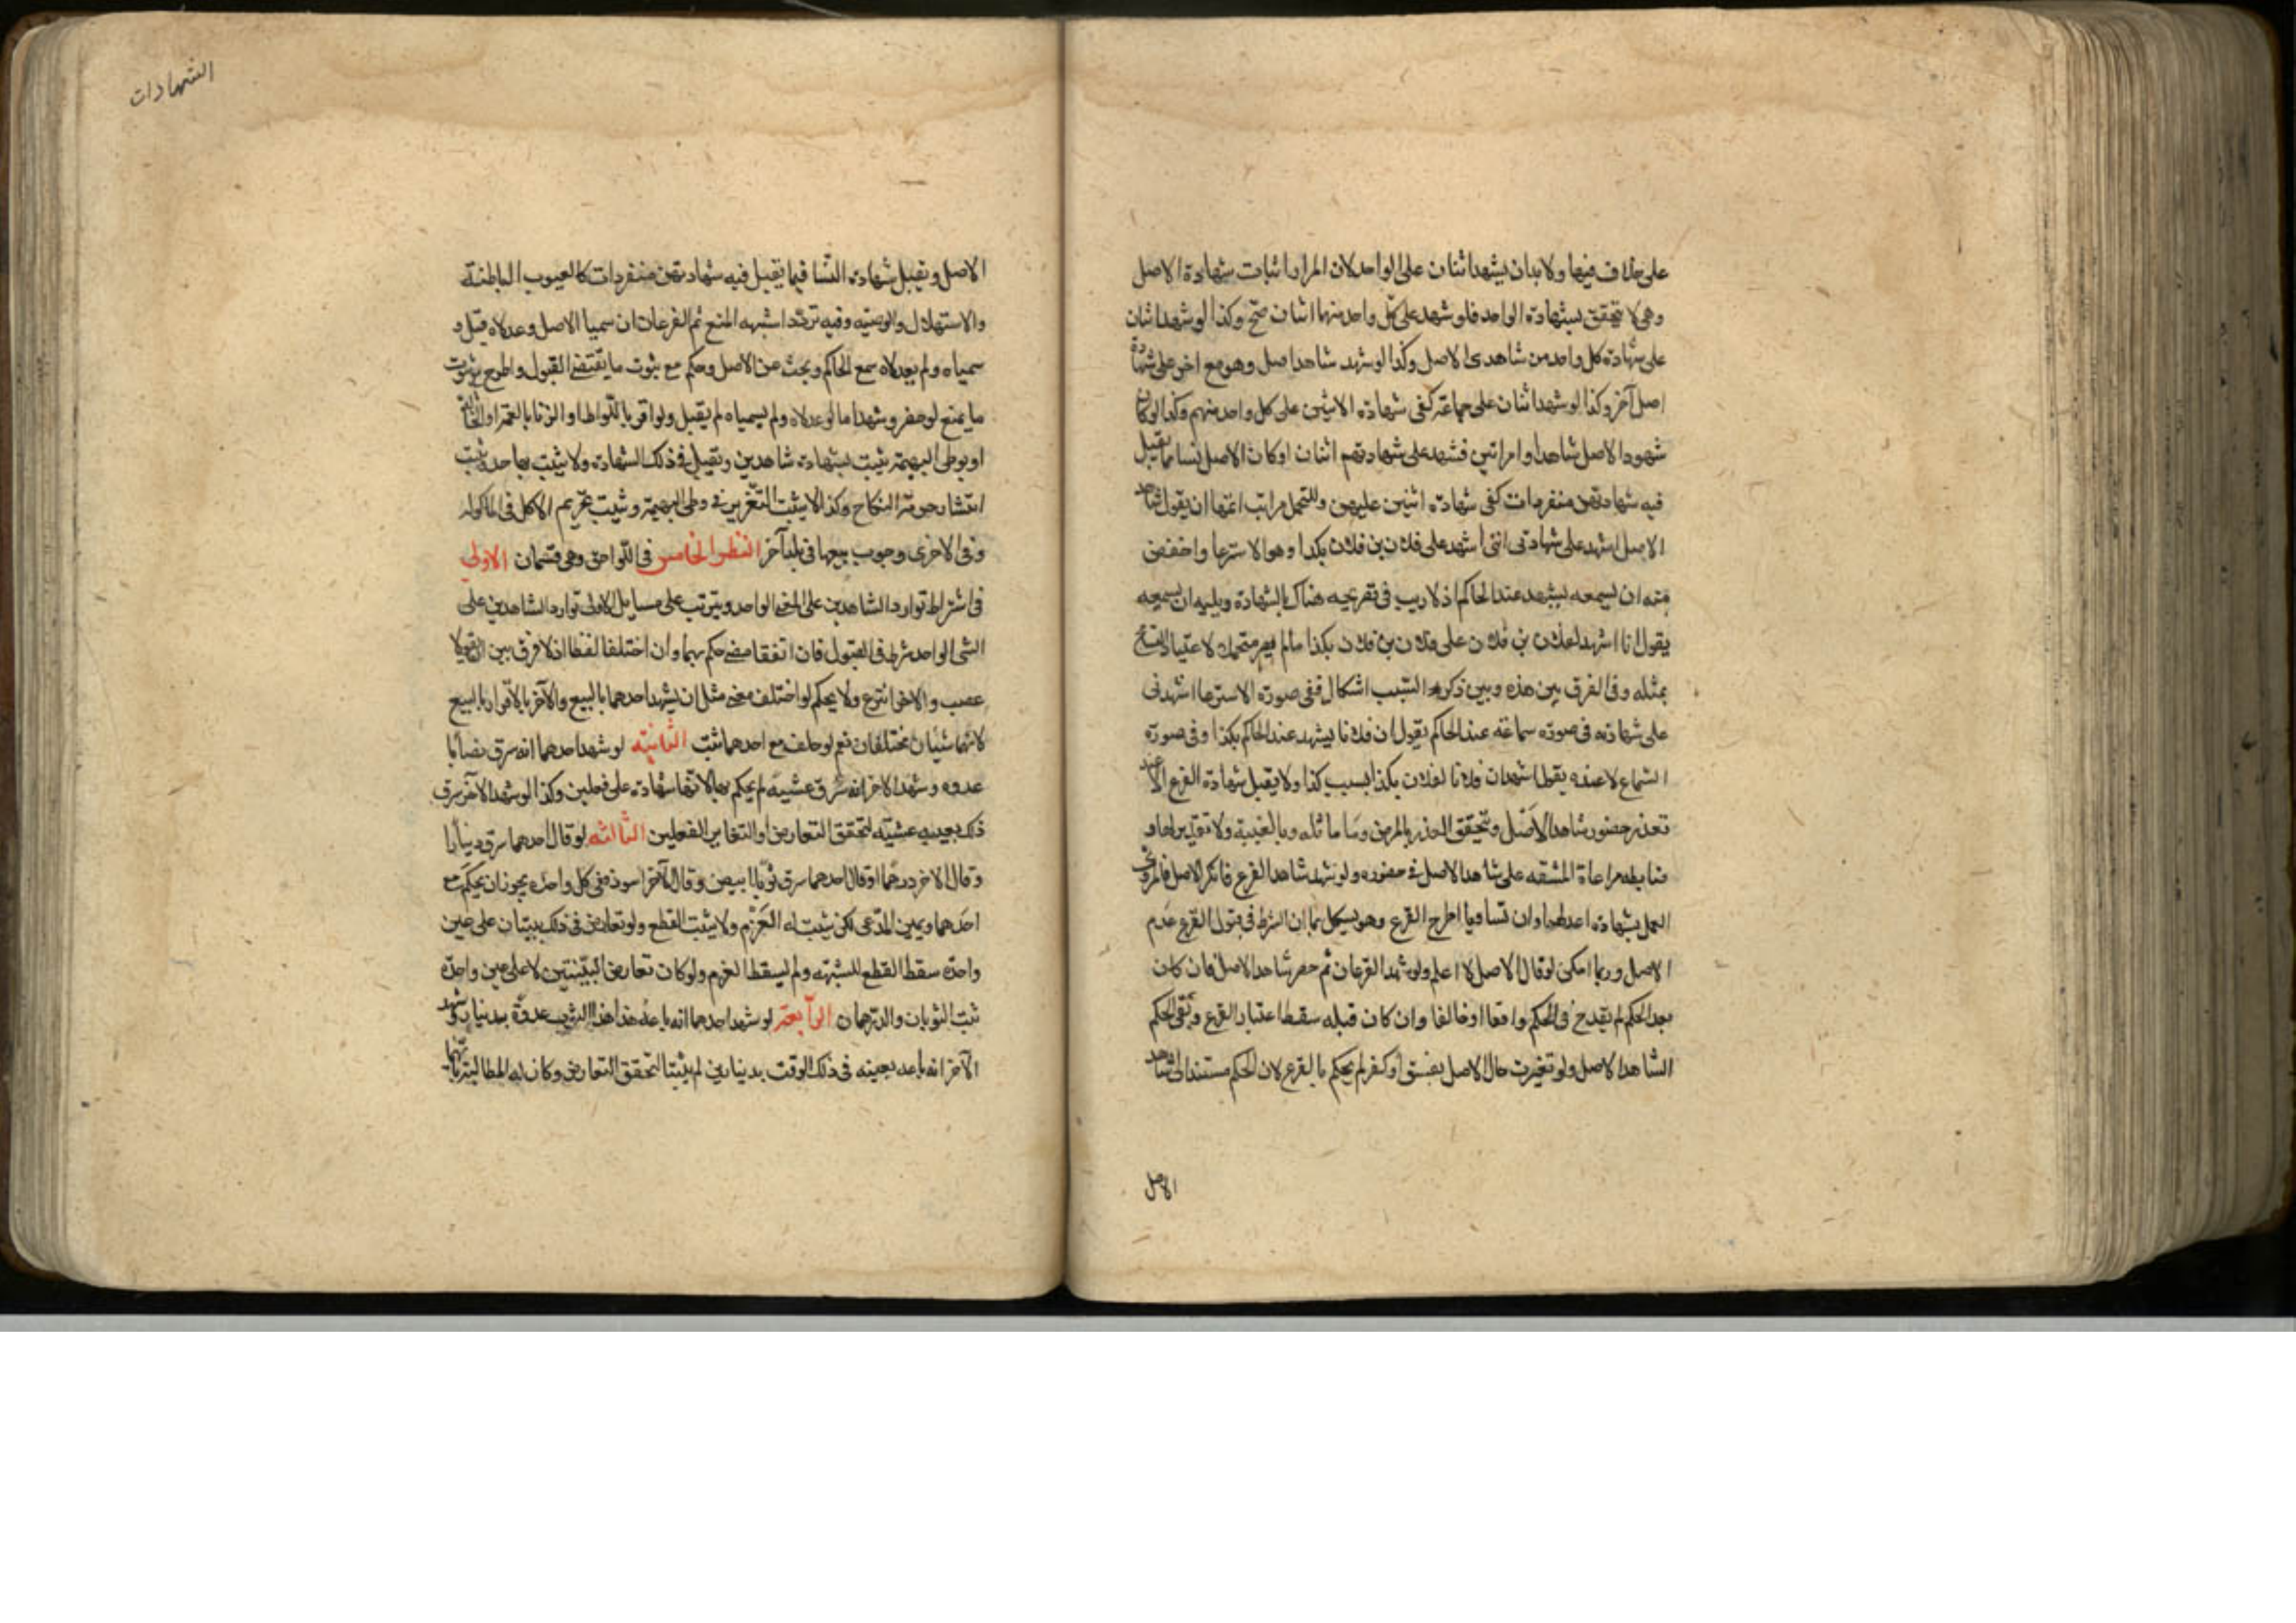 على خلاف فيها ولا بد ان يشهد اثنان على الواحد لان المراد اثبات شهادة الاصل
وهي لا تتحقق بشهادة الواحد فلو شهد على كل واحد منهما اثنان صح وكذا لو شهد اثنان
على شهادة كل واحد من شاهدى الاصل وكذا لو شهد شاهد اصل وهو مع اخر على شهادة
اصل آخر وكذا لو شهد اثنان على جماعة كفى شهادة الاثنين على كل واحد منهم وكذا لو كان
شهود الاصل شاهدا وامراتين فشهد على شهادتهم اثنان او كان الاصل نسا فيما يقبل
فيه شهادتهن منفردات كفى شهادة اثنين عليهن وللتحمل مراتب اتمها ان يقول شاهد
الاصل اشهد على شهادتى اننى اشهد على فلان بن فلان بكذا وهو الاسترعا واخفض
منه ان يسمعه يشهد عند الحاكم اذ لا ريب فى تصريحه هناك بالشهادة ويليه ان يسمعه
يقول انا اشهد لفلان بن فلان على فلان بن فلان بكذا
بمثله وفى الفرق بين هذه وبين ذكر السبب اشكال ففى صورة الاسترعا اشهدنى
على شهادته فى صورة سماعه عند الحاكم يقول ان فلانا يشهد عند الحاكم بكذا وفى صورة
السماع لا عنده يقول اشهد ان فلانا لفلان بكذا بسبب كذا ولا يقبل شهادة الفرع الا عند
تعذر حضور شاهد الاصل ويتحقق العذر بالمرض وما ماثله وبالغيبة ولا تقدير لها و
ضابطه مراعاة المشقه على شاهد الاصل فى حضوره ولو شهد شاهد الفرع فانكر الاصل فالمروى
العمل بشهادة اعدلهما وان تساويا اطرح الفرع وهو يشكل بما ان الشرط فى قبول الفرع عدم
الاصل وربما امكن لو قال الاصل لا اعلم ولو شهد الفرعان ثم حضر شاهد الاصل فان كان
بعد الحكم لم يقدح فى الحكم وافقا او خالفا وان كان قبله سقط اعتبار الفرع وبقى الحكم
الشاهد الاصل ولو تغيرت حال الاصل بفسق او كفر لم يحكم بالفرع لان الحكم مستند الى شاهد
الاصل
الشهادات
الاصل وتقبل شهادة النسا فيما يقبل فيه شهادتهن منفردات كالعيوب الباطنة
والاستهلال والوصيه وفيه تردد اشبهه المنع ثم الفرعان ان سميا الاصل وعدلاه قبل و
سمياه ولم يعدلاه سمع الحاكم وبحث عن الاصل وحكم مع ثبوت ما يقتضى القبول واطرح مع ثبوت
ما يمنع لو حضر وشهد اما لو عدلاه ولم يسمياه لم يقبل ولو اقر باللواط او الزنا بالعمة او الخالة
او بوطى البهيمة ثبت بشهادة شاهدين وتقبل فى ذلك الشهادة ولا يثبت بها حد ويثبت
انتشار حرمة النكاح وكذا لا يثبت التعزير فى وطى البهيمة ويثبت تحريم الاكل فى الماكولة
وفى الاخرى وجوب بيعها فى بلد آخر النظر الخامس فى اللواحق وهى قسمان الاولى
فى اشتراط توارد الشاهدين على المعنى الواحد ويترتب على مسايل الاولى توارد الشاهدين على
الشى الواحد شرط فى القبول فان اتفقا معنى حكم بهما وان اختلفا لفظا اذ لا فرق بين ان يقولا
غصب والاخر انتزع ولا يحكم لو اختلف معنى مثل ان يشهد احدهما بالبيع والآخر بالاقرار بالبيع
لانهما شيئان مختلفان نعم لو حلف مع احدهما ثبت الثانيه لو شهد احدهما انه سرق نصابا
غدوه وشهد الاخر انه سرق عشيه لم يحكم بها لانها شهادة على فعلين وكذا لو شهد الآخر سرق
ذلك بعينه عشيه لتحقق التعارض او لتغاير الفعلين الثالثه لو قال احدهما سرق دينارا
وقال الاخر درهما او قال احدهما سرق ثوبا ابيض وقال الآخر اسود ففى كل واحد يجوز ان يحكم مع
احدهما ويمين المدعى لكن يثبت له الغرم ولا يثبت القطع ولو تعارض فى ذلك بينتان على عين
واحدة سقط القطع للشبهة ولم يسقط الغرم ولو كان تعارض البينتين لا على عين واحدة
ثبت الثوبان والدرهمان الرابعة لو شهد احدهما انه باعه هذا الثوب غدوة بدينار وشهد
الآخر انه باعه بعينه فى ذلك الوقت بدينارين لم يثبتا لتحقق التعارض وكان له المطالبة بايهما